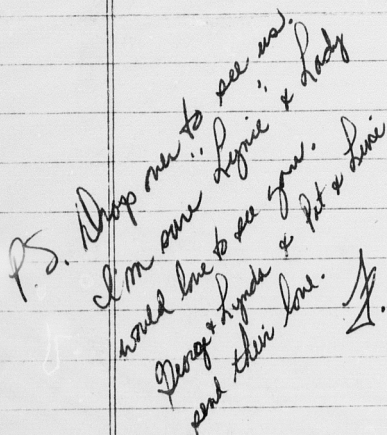 P.S. Drop over to see us.
I'm sure "Lynie" & Lady
would love to see you.
George & Lynda & Pat & Lini
send their love.
F.